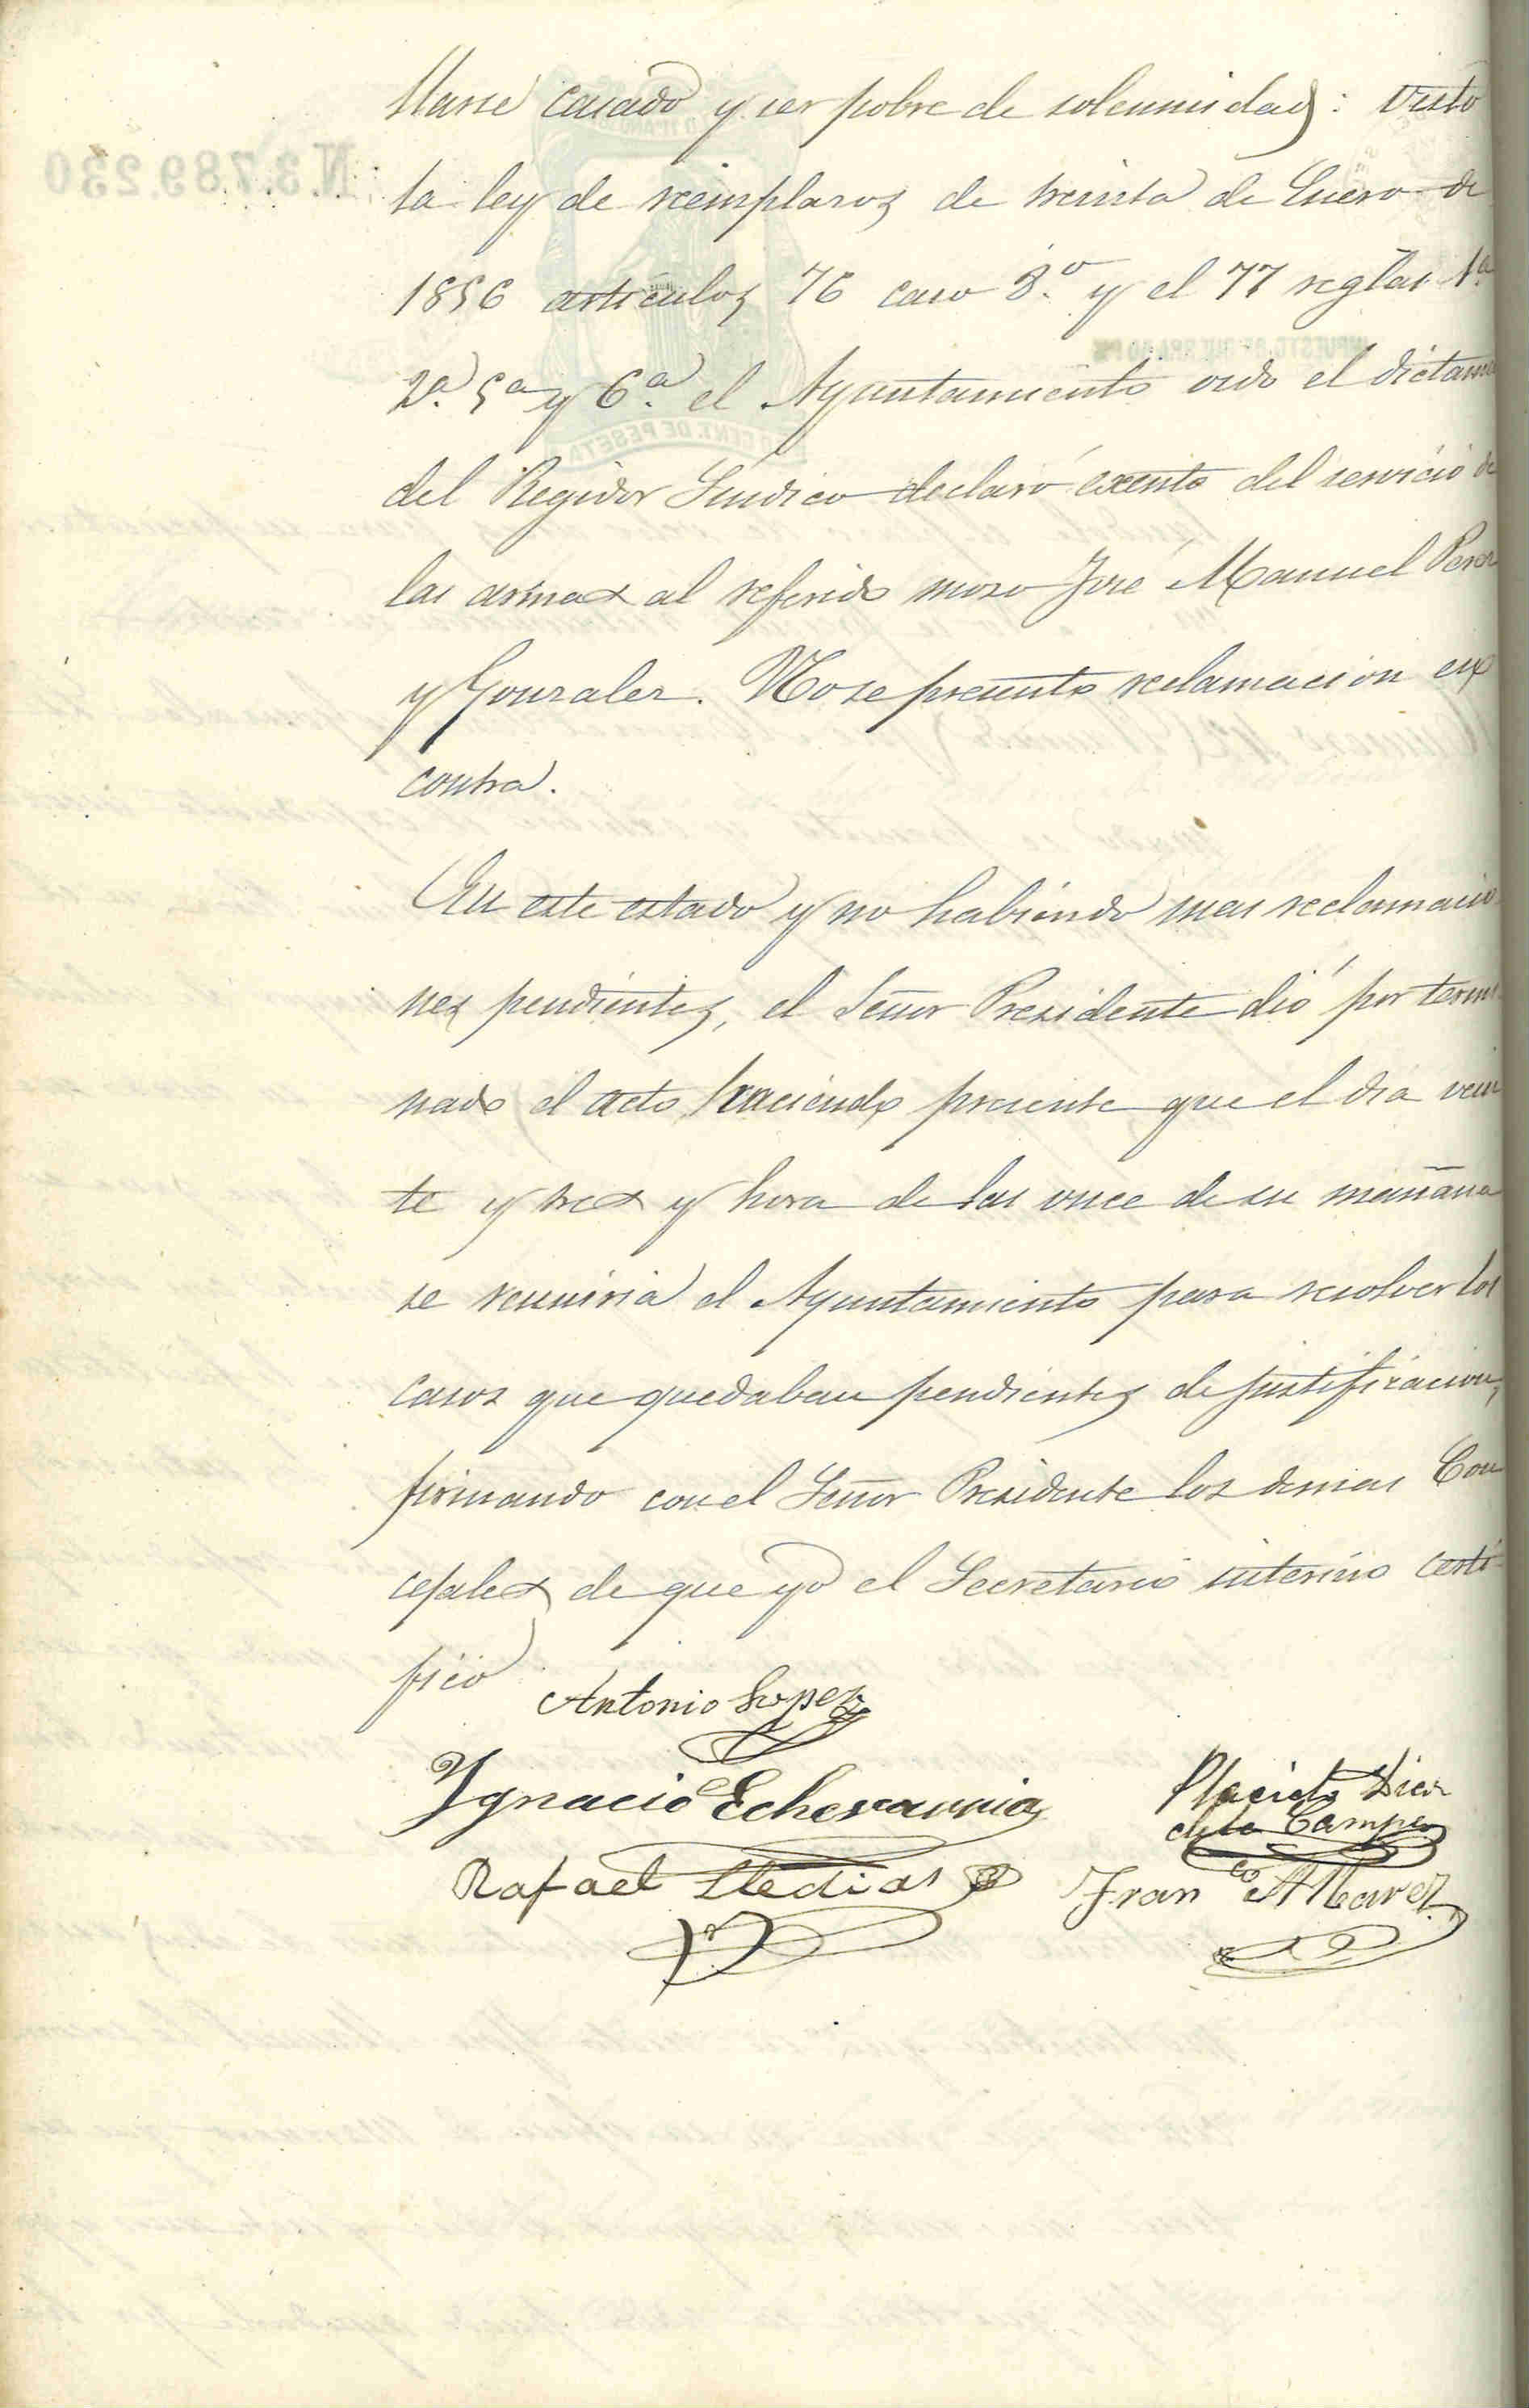 llarse casado y ser pobre de solemnidad: visto
la ley de reemplazos de treinta de Enero de
1856 articulos 76 caso 3.º y el 77 reglas 1ª
2ª. 5ª y 6ª. el Ayuntamiento oido el dictame
del Regidor Síndico declaró exento del servicio de
las armas al referido mozo José Manuel Perez
y Gonzalez. No se presentó reclamacion en
contra.
En este estado y no habiendo mas reclamacio
nes pendientes, el Señor Presidente dió por termi
nado el acto haciendo presente que el dia vein
te y tres y hora de las once de su mañana
se reuniria el Ayuntamiento para resolver los
casos que quedaban pendientes de justificacion,
firmando con el Señor Presidente los demas Con
cejales de que yo el Secretario interino certi
fico
Antonio Lopez
Ygnacio Echevarria
Placido Diez
de la Campa
Rafael Lledias
Fran co Alvarez
N.3.789.230